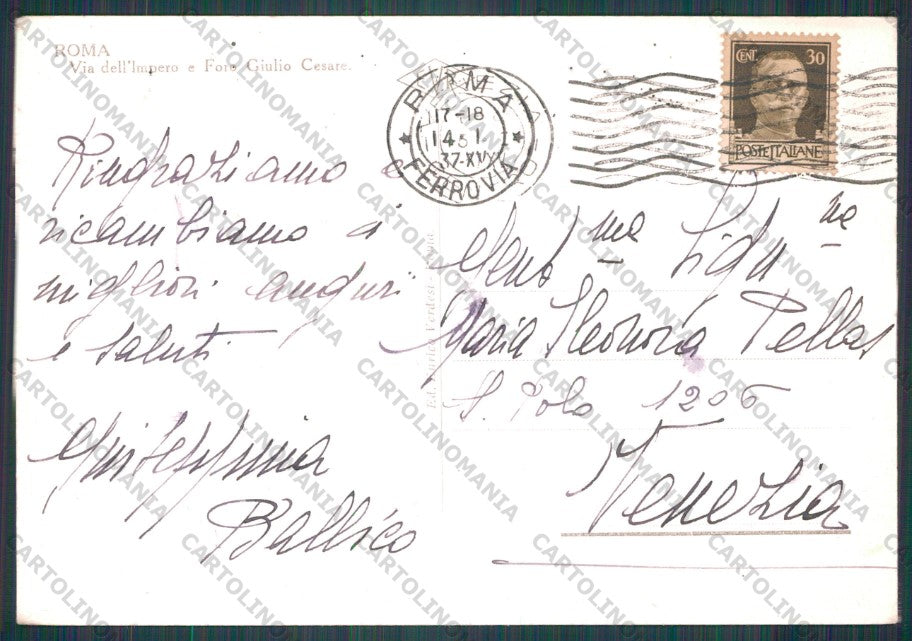 ROMA
Via dell'Impero e Foro Giulio Cesare.
ROMA
17-18
14 1
37-XV
FERROVIA
CENT. 30
POSTE ITALIANE
Ringraziamo e
ricambiamo i
migliori auguri
e saluti
Giuseppina
Ballico
Gent.ma Sig.na
Maria Eleonora Pellas
S. Polo 1206
Venezia
CARTOLINOMANIA